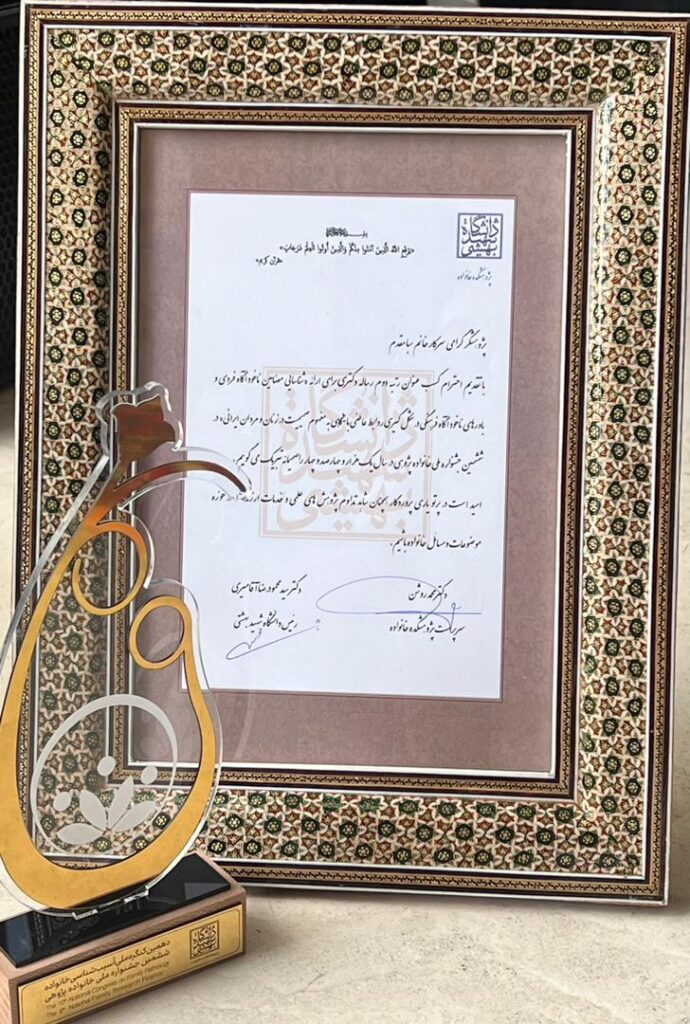 «یرفع الله الذین آمنوا منکم والذین أوتوا العلم درجات»
«قرآن کریم»
دانشگاه
شهید
بهشتی
پژوهشکده خانواده
پژوهشگر گرامی سرکار خانم صبا مقدم
با تقدیم احترام کسب عنوان رتبه دوم رساله دکتری برای ارائه «شناسایی مضامین ناخودآگاه فردی و
باورهای ناخودآگاه فرهنگی در شکل گیری روابط عاطفی با نگاهی به مفهوم صمیمیت در زنان و مردان ایرانی» در
ششمین جشنواره ملی خانواده پژوهی در سال یک هزار و چهارصد و چهار را صمیمانه تبریک می گویم.
امید است در پرتو یاری پروردگار همچنان شاهد تداوم پژوهش های علمی و خدمات حوزه
موضوعات و مسایل خانواده باشیم.
دکتر محمد روشن
سرپرست پژوهشکده خانواده
دکتر سید محمود رضا آقامیری
رئیس دانشگاه شهید بهشتی
دانشگاه
شهید
بهشتی
دهمین کنگره ملی آسیب شناسی خانواده
ششمین جشنواره ملی خانواده پژوهی
The 10th National Congress on Family Pathology
The 6th National Family Research Festival